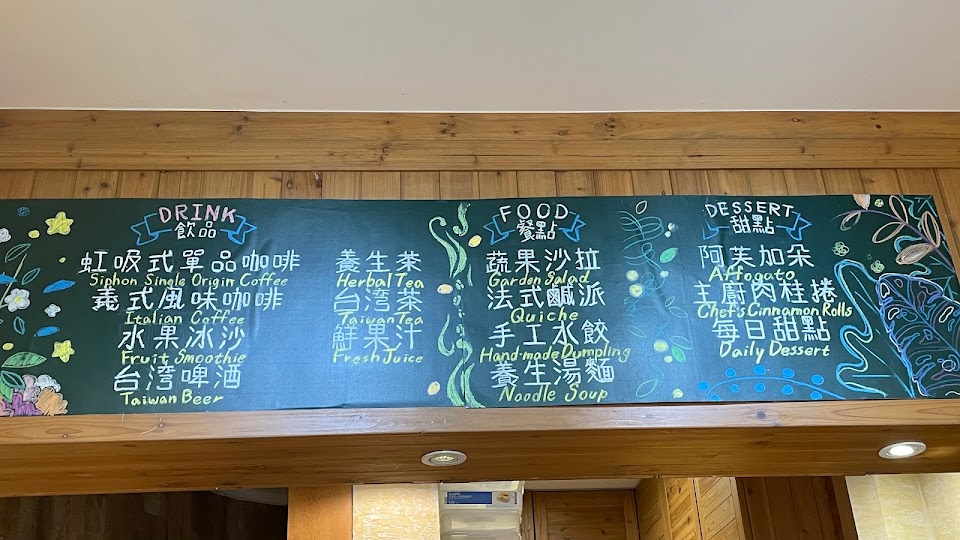 DRINK
飲品
虹吸式單品咖啡
Siphon Single Origin Coffee
義式風味咖啡
Italian Coffee
水果冰沙
Fruit Smoothie
台湾啤酒
Taiwan Beer
養生茶
Herbal Tea
台湾茶
Taiwan Tea
鮮果汁
Fresh Juice
FOOD
餐點
蔬果沙拉
Garden Salad
法式鹹派
Quiche
手工水餃
Hand-made Dumpling
養生湯麵
Noodle Soup
DESSERT
甜點
阿芙加朵
Affogato
主廚肉桂捲
Chef's Cinnamon Rolls
每日甜點
Daily Dessert